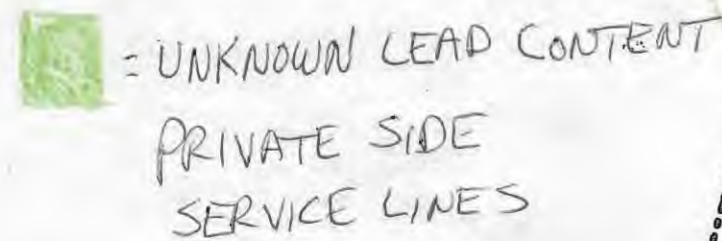 = UNKNOWN LEAD CONTENT
PRIVATE SIDE
SERVICE LINES